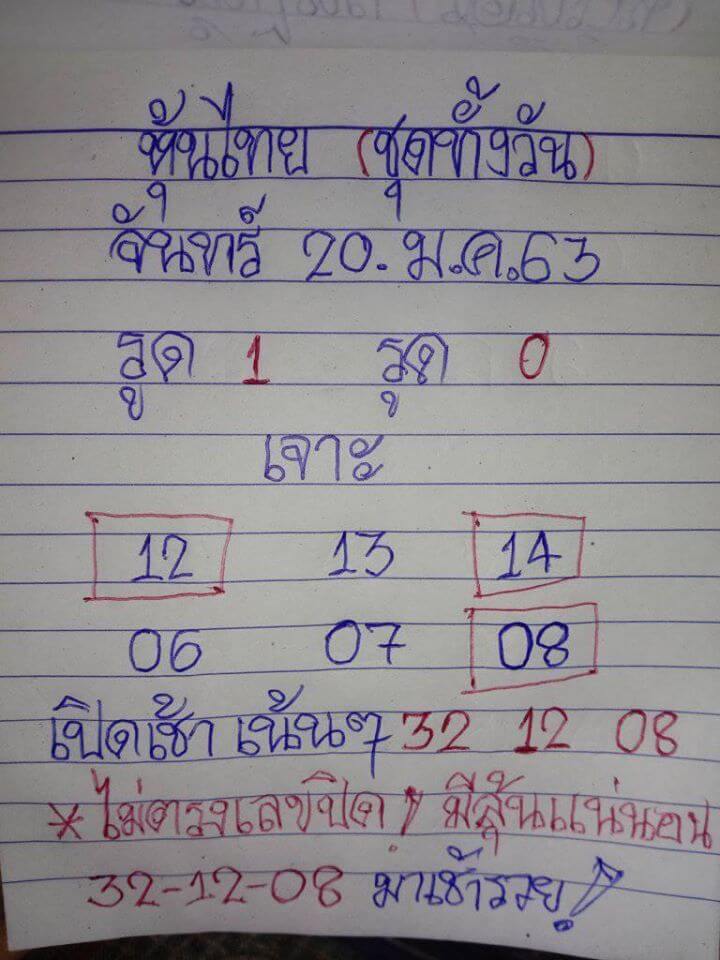 หุ้นไทย (ชุดทั้งวัน)
จันทร์ 20.ม.ค.63
รูด 1 รูด 0
เจาะ
12 13 14
06 07 08
เปิดเช้า เน้นๆ 32 12 08
*ไม่ตรงเลขปิด! มีลุ้นแน่นอน
32-12-08 มาเช้ารวย!